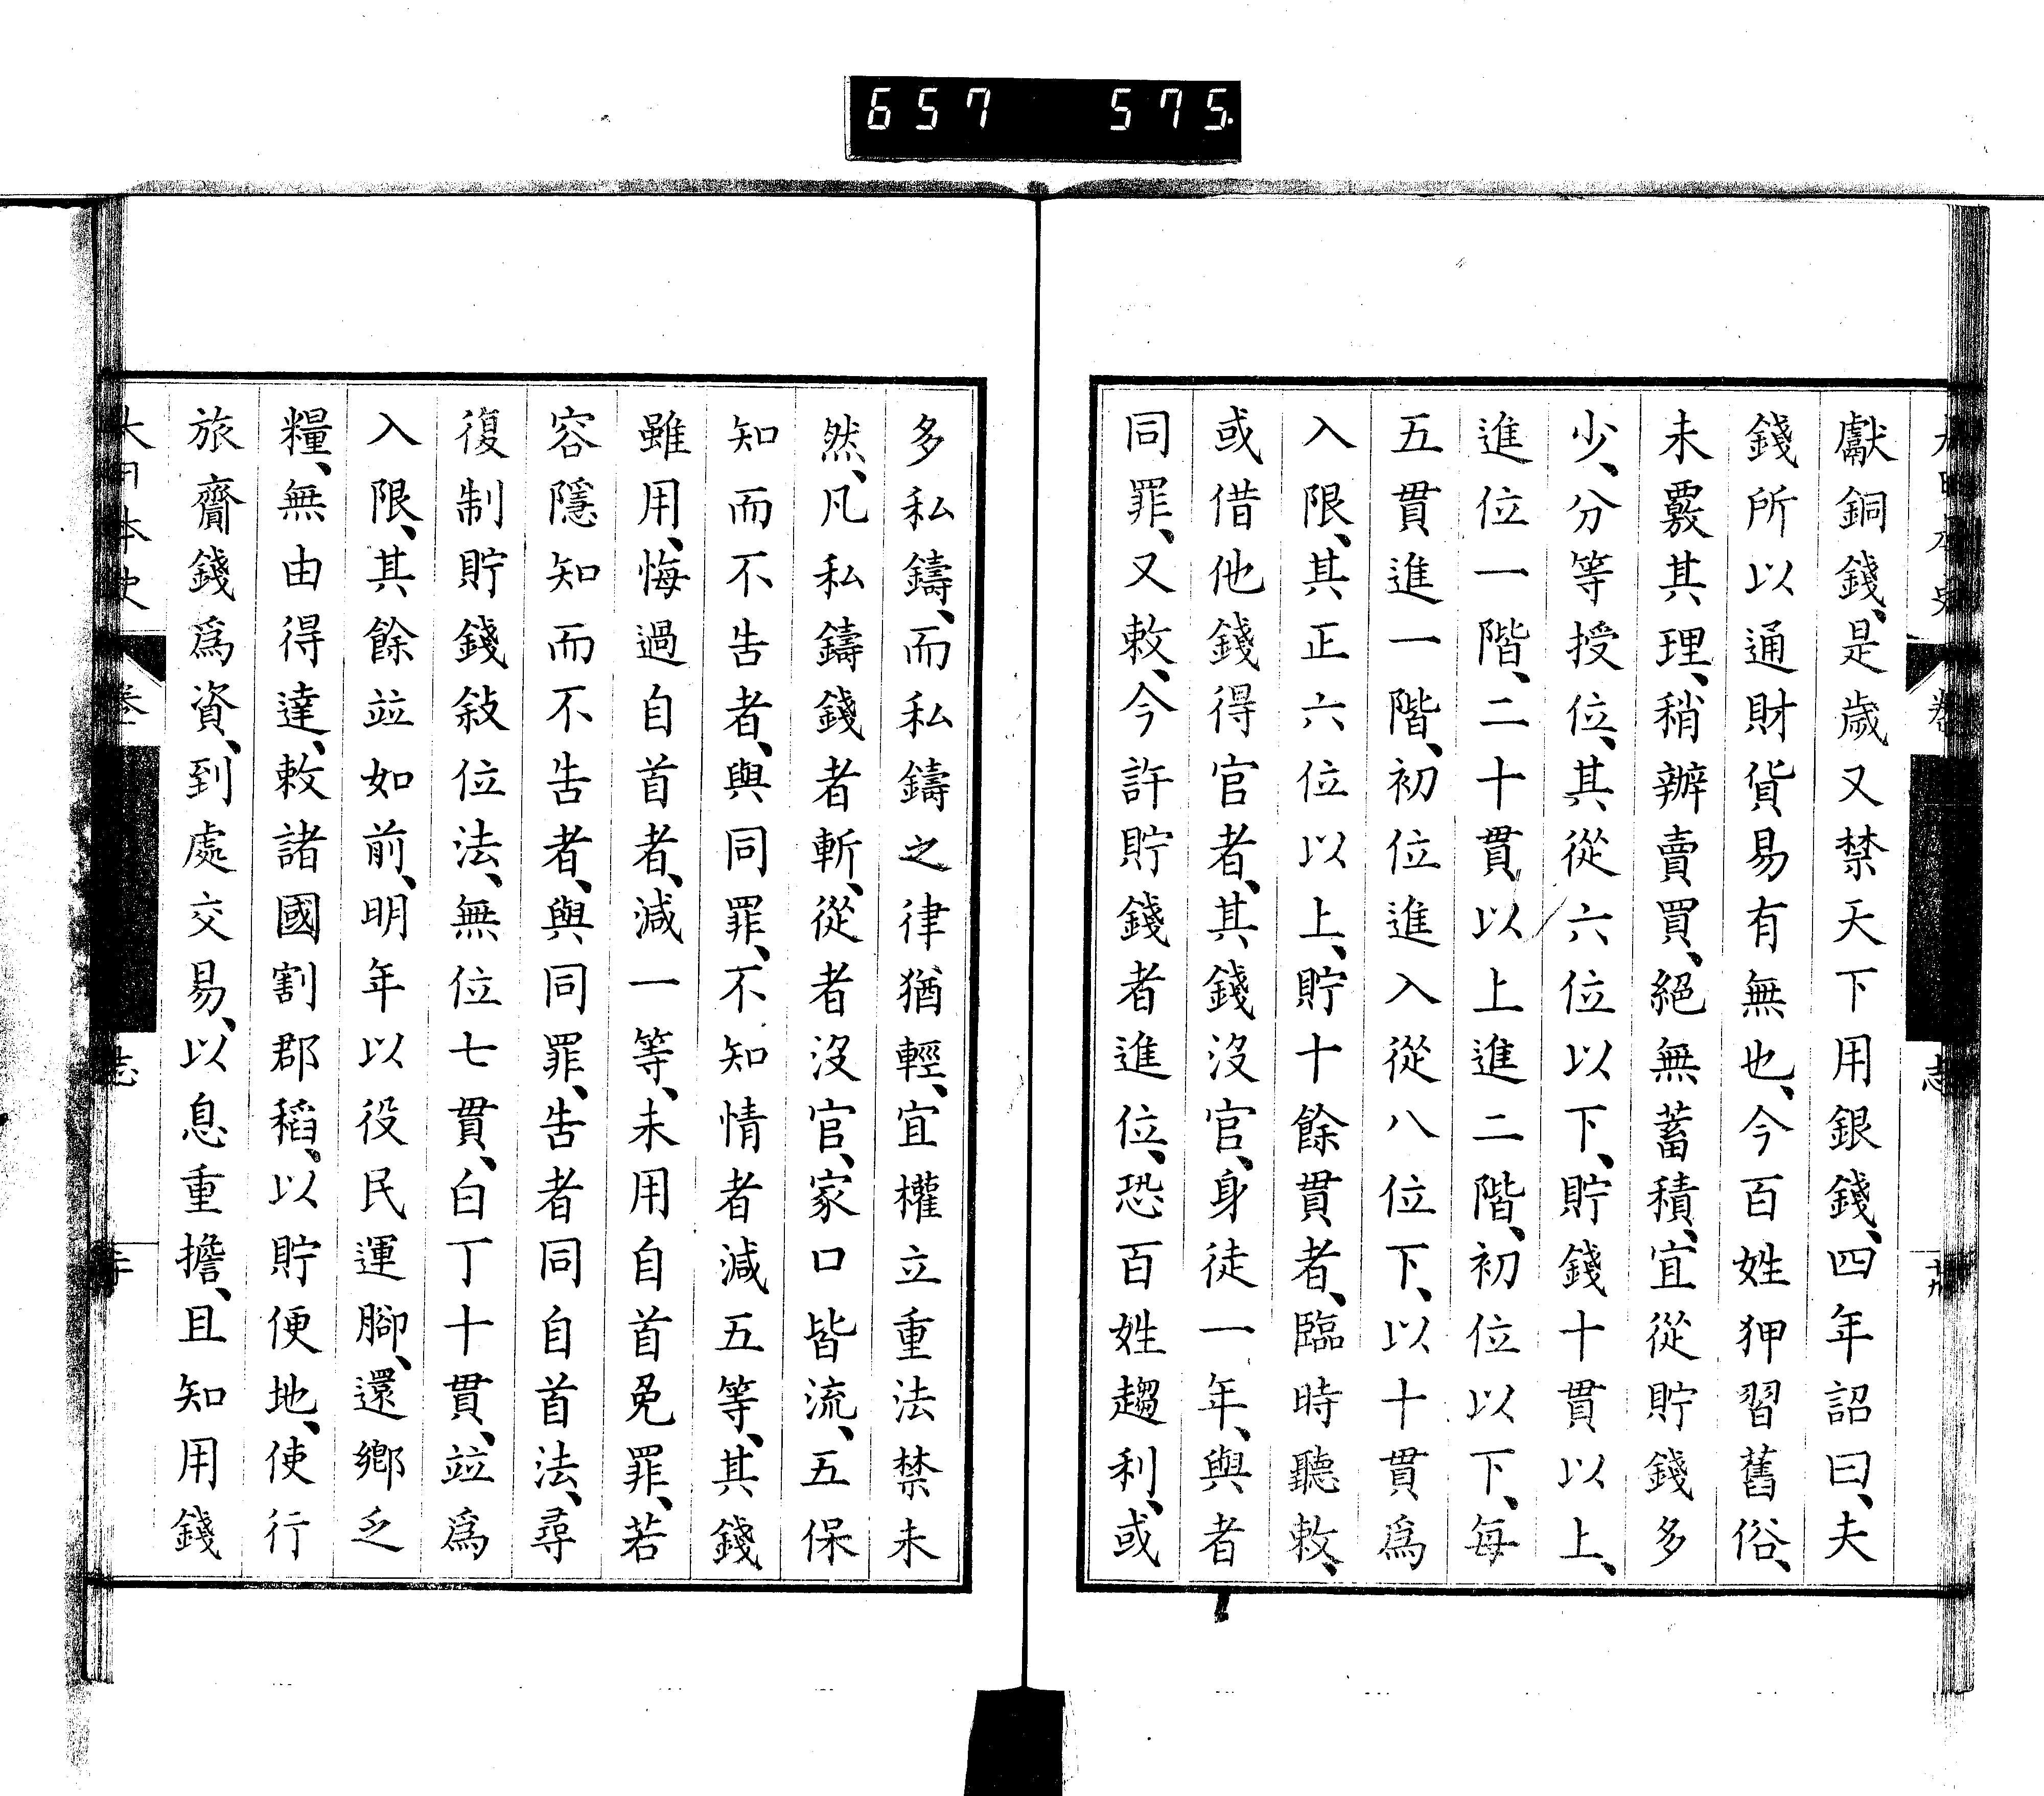 657 575.
大日本史 卷 志 十九
獻銅錢、是歲又禁天下用銀錢、四年詔曰、夫
錢所以通財貨易有無也、今百姓狎習舊俗、
未覈其理、稍辨賣買、絕無蓄積、宜從貯錢多
少、分等授位、其從六位以下、貯錢十貫以上、
進位一階、二十貫以上進二階、初位以下、每
五貫進一階、初位進入從八位下、以十貫爲
入限、其正六位以上、貯十餘貫者、臨時聽敕、
或借他錢得官者、其錢沒官、身徒一年、與者
同罪、又敕、今許貯錢者進位、恐百姓趨利、或
多私鑄、而私鑄之律猶輕、宜權立重法禁未
然、凡私鑄錢者斬、從者沒官、家口皆流、五保
知而不告者、與同罪、不知情者減五等、其錢
雖用、悔過自首者、減一等、未用自首免罪、若
容隱知而不告者、與同罪、告者同自首法、尋
復制貯錢敍位法、無位七貫、白丁十貫、竝爲
入限、其餘竝如前、明年以役民運腳、還鄉乏
糧、無由得達、敕諸國割郡稻、以貯便地、使行
旅齎錢爲資、到處交易、以息重擔、且知用錢
大日本史 卷 志